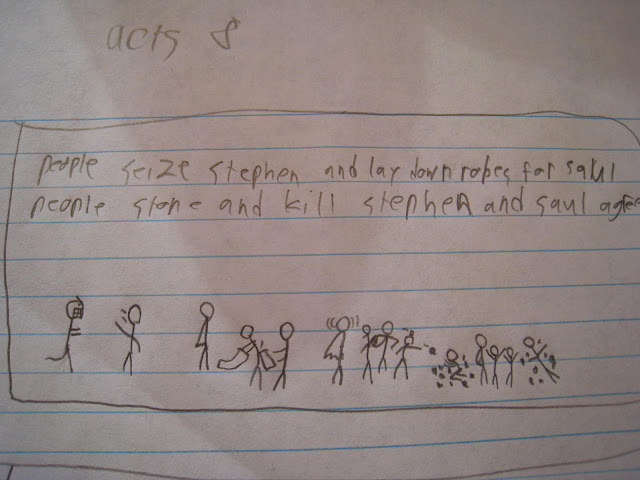 acts 8
people seize stephen and lay down robes for saul
people stone and kill stephen and saul agree